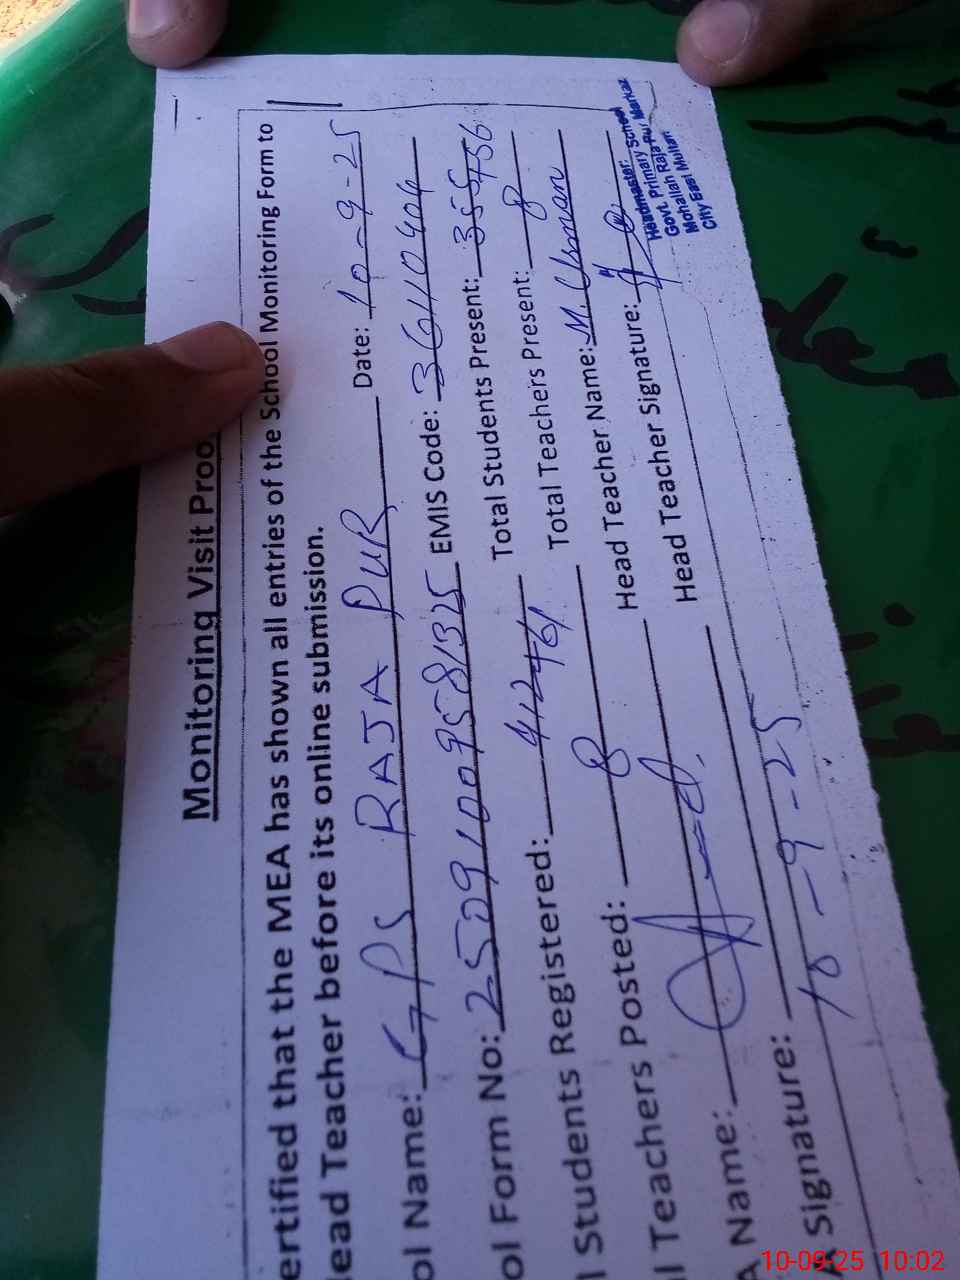 Monitoring Visit Proo
ertified that the MEA has shown all entries of the School Monitoring Form to
lead Teacher before its online submission.
ol Name: GPS RAJA PUR Date: 10-9-25
ol Form No: 25091009581325 EMIS Code: 36110404
l Students Registered: Total Students Present:
l Teachers Posted: 8 Total Teachers Present: 8
A Name: Head Teacher Name: M. Usman
Signature: Head Teacher Signature:
10-9-25
Headmaster School
Govt. Primary Pur Markaz
Mohallah Raja
City East Multan
10-09-25 10:02